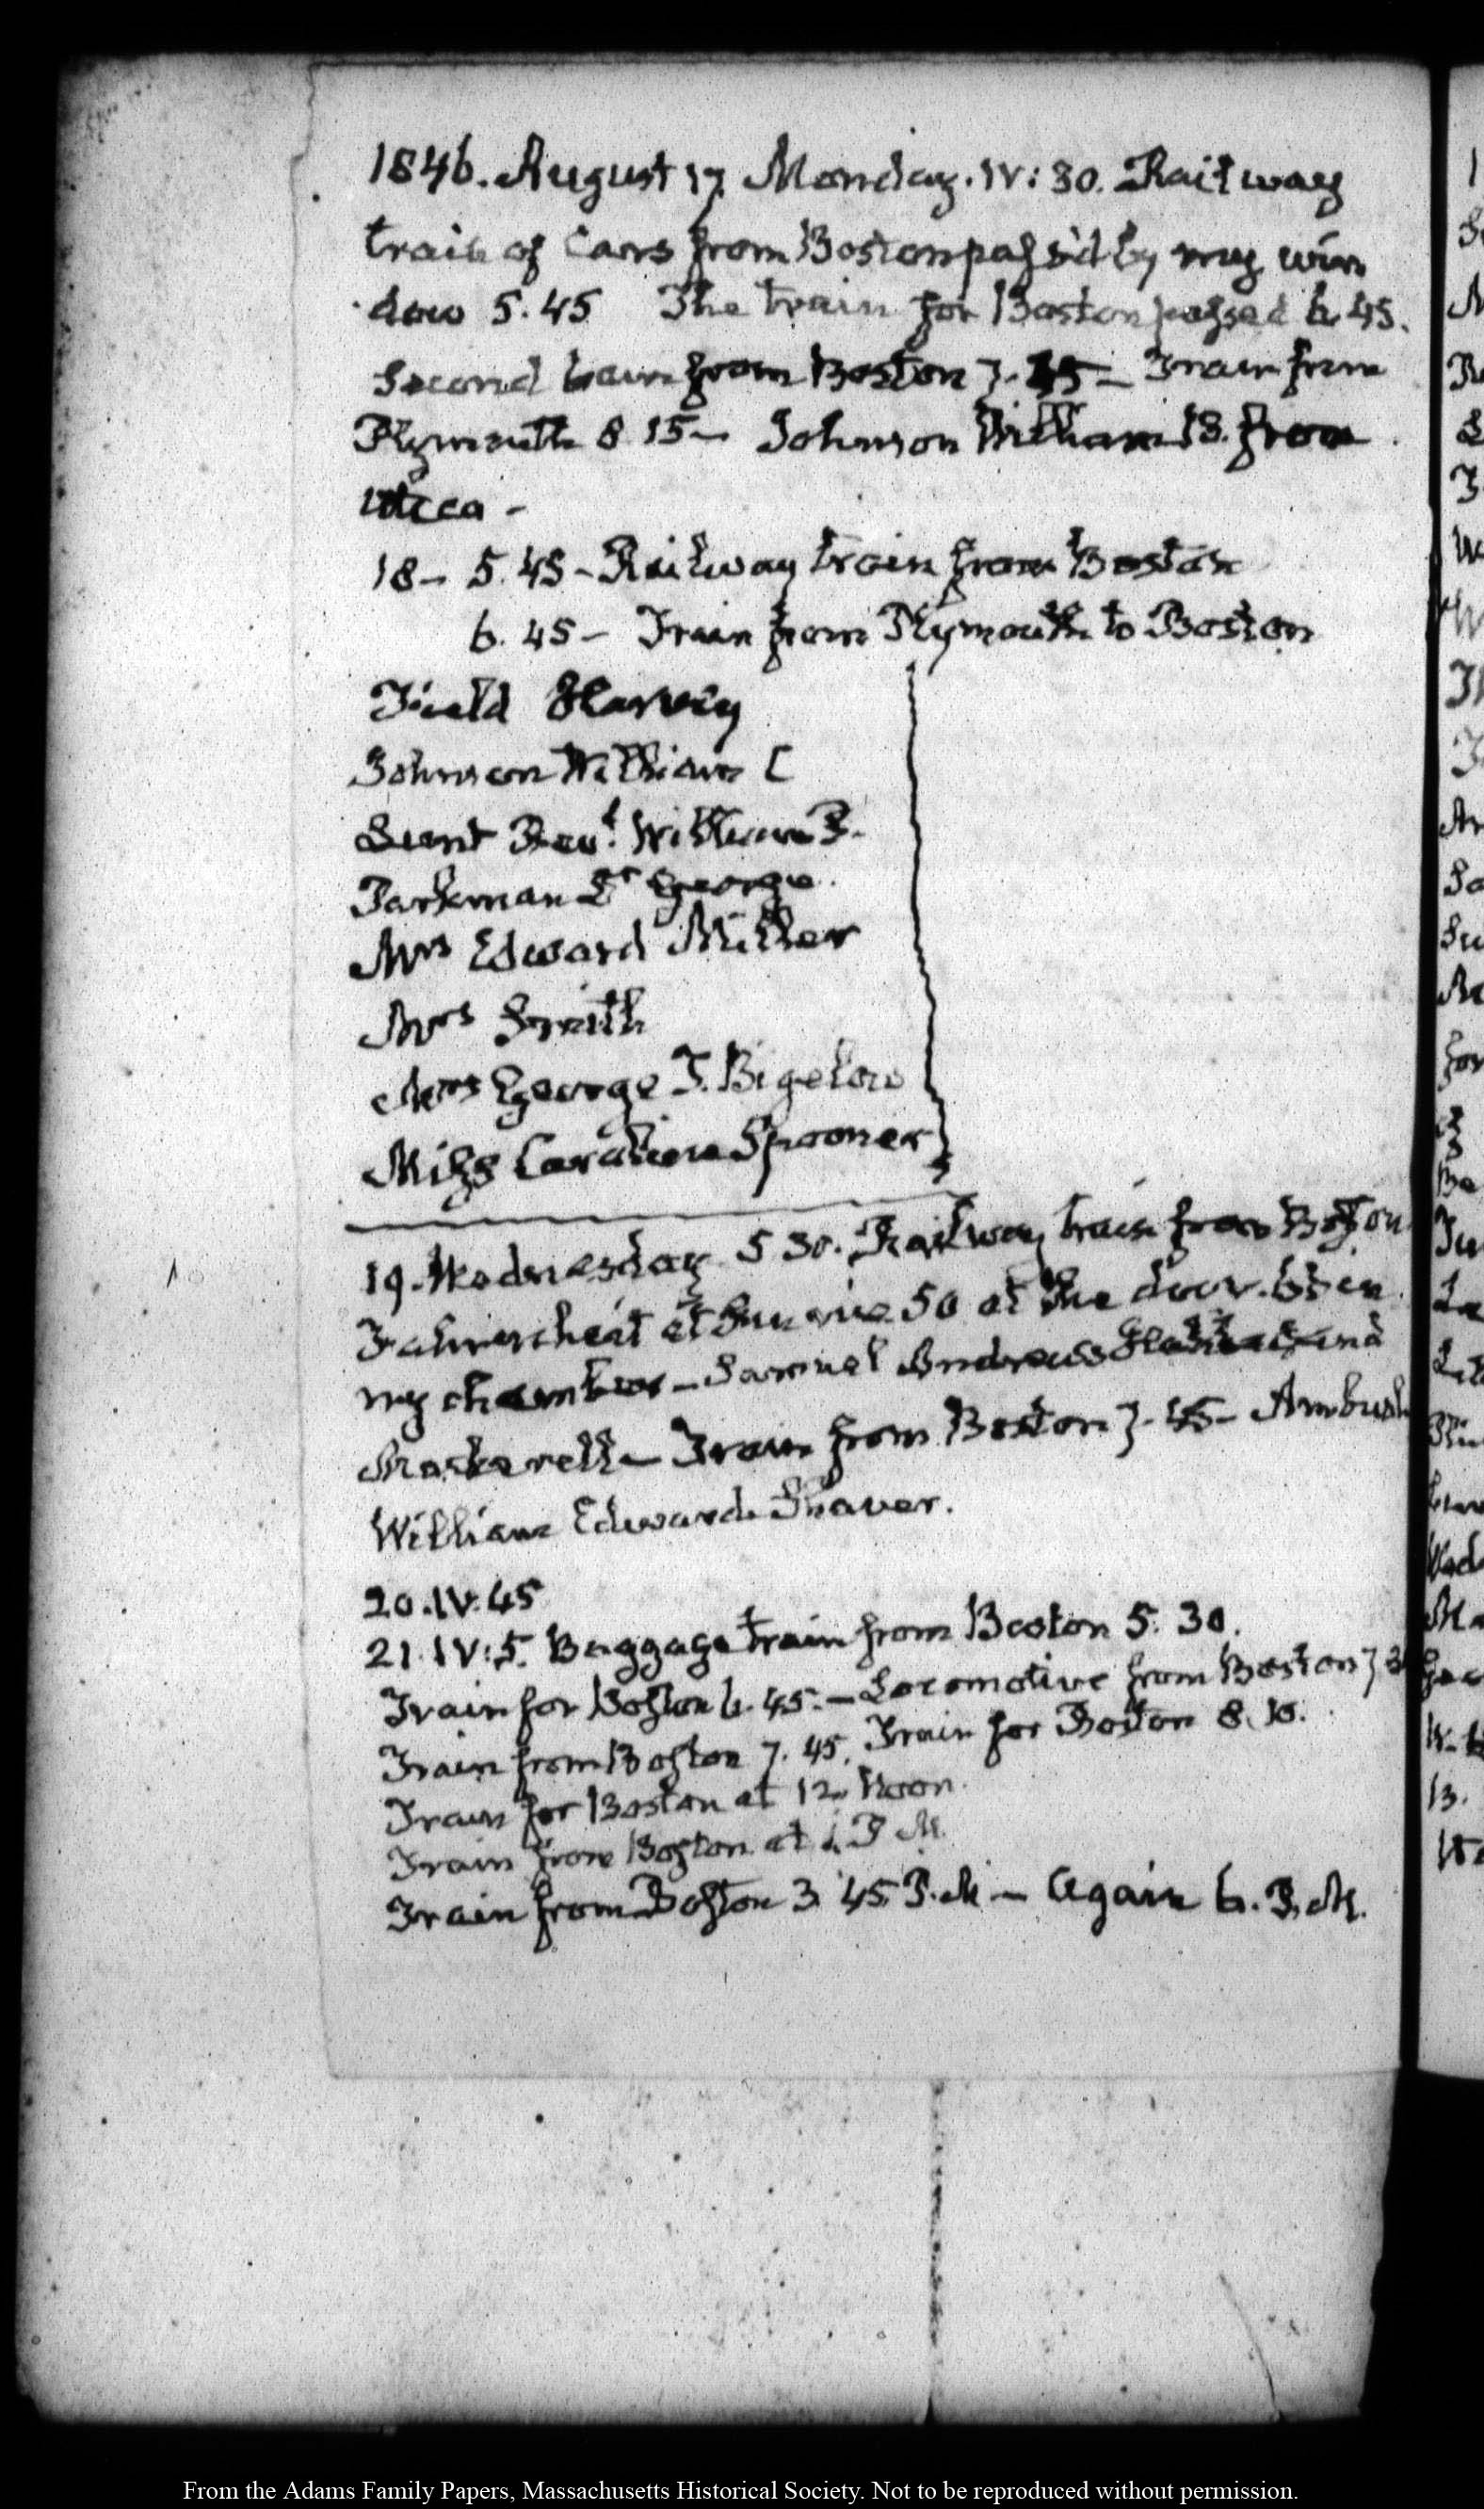 1846. August 17. Monday. IV: 30. Railway
train of Cars from Boston pass'd by my win
dow 5. 45 The train for Boston passed 6. 45.
Second train from Boston 7. 45 — Train from
Plymouth 8 15 — Johnson William from
Utica -
18 — 5. 45 — Railway train from Boston
6. 45 — Train from Plymouth to Boston
Field Harvey
Johnson William C
Lunt Revd. William P.
Parkman Dr George.
Mrs Edward Miller
Mrs Smith
Mrs George T. Bigelow
Miss Caroline Spooner
19. Wednesday 5 30. Railway train from Boston
Fahrenheit at Sun rise 50 at the door. in
my chamber — Samuel Andrews and
Train from Boston 7. 45 — Ambush
William Edward Thaver.
20. IV. 45
21. IV: 5. Baggage train from Boston 5. 30.
Train for Boston 6. 45. — Locomotive from Boston 7
Train from Boston 7. 45. Train for Boston 8.
Train for Boston at 12. Noon.
Train from Boston at 1. P M.
Train from Boston 3. 45 P. M — Again 6. P. M.
From the Adams Family Papers, Massachusetts Historical Society. Not to be reproduced without permission.